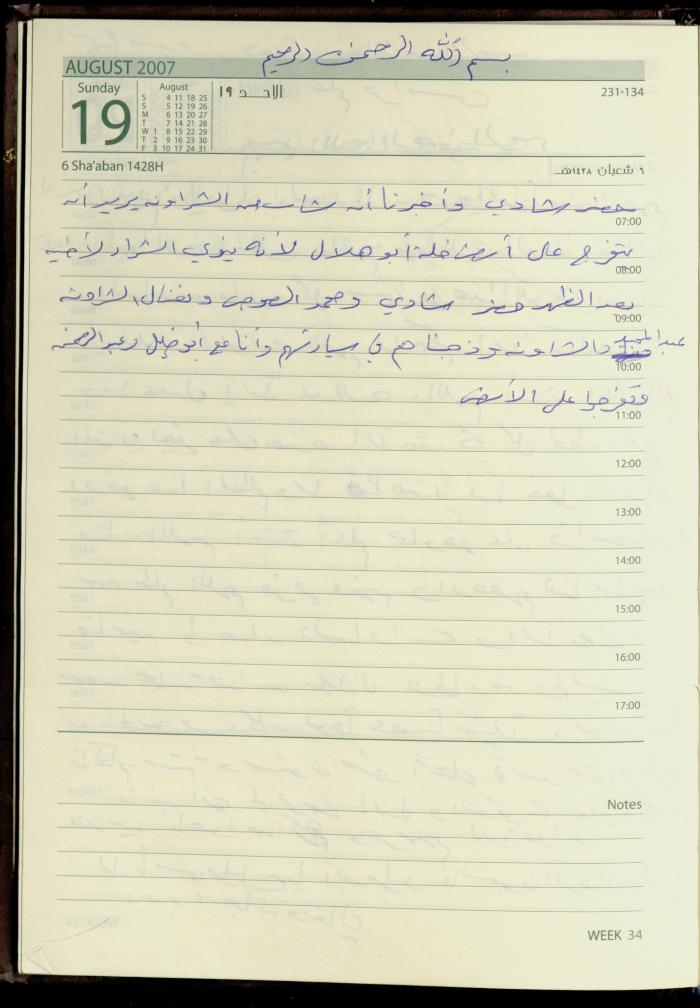 بسم الله الرحمن الرحيم
AUGUST 2007
Sunday
19
August
S 4 11 18 25
S 5 12 19 26
M 6 13 20 27
T 7 14 21 28
W 1 8 15 22 29
T 2 9 16 23 30
F 3 10 17 24 31
الأحد ١٩
231-134
6 Sha'aban 1428H
٦ شعبان ١٤٢٨هـ
حضر شادي وأخبرنا أن شاب من الشراونه يريد أن
07:00
يتفرج على أرض خلة أبو هلال لأنه ينوي الشراء لأخيه
08:00
بعد الظهر حضر شادي ومحمد العوص ونضال الشراونه
09:00
عبد المجيد
والشراونه وذهبنا هم في سيارتهم وأنا مع أبو خليل وعبد الرحمن
10:00
فتفرجوا على الأرض
11:00
12:00
13:00
14:00
15:00
16:00
17:00
Notes
WEEK 34